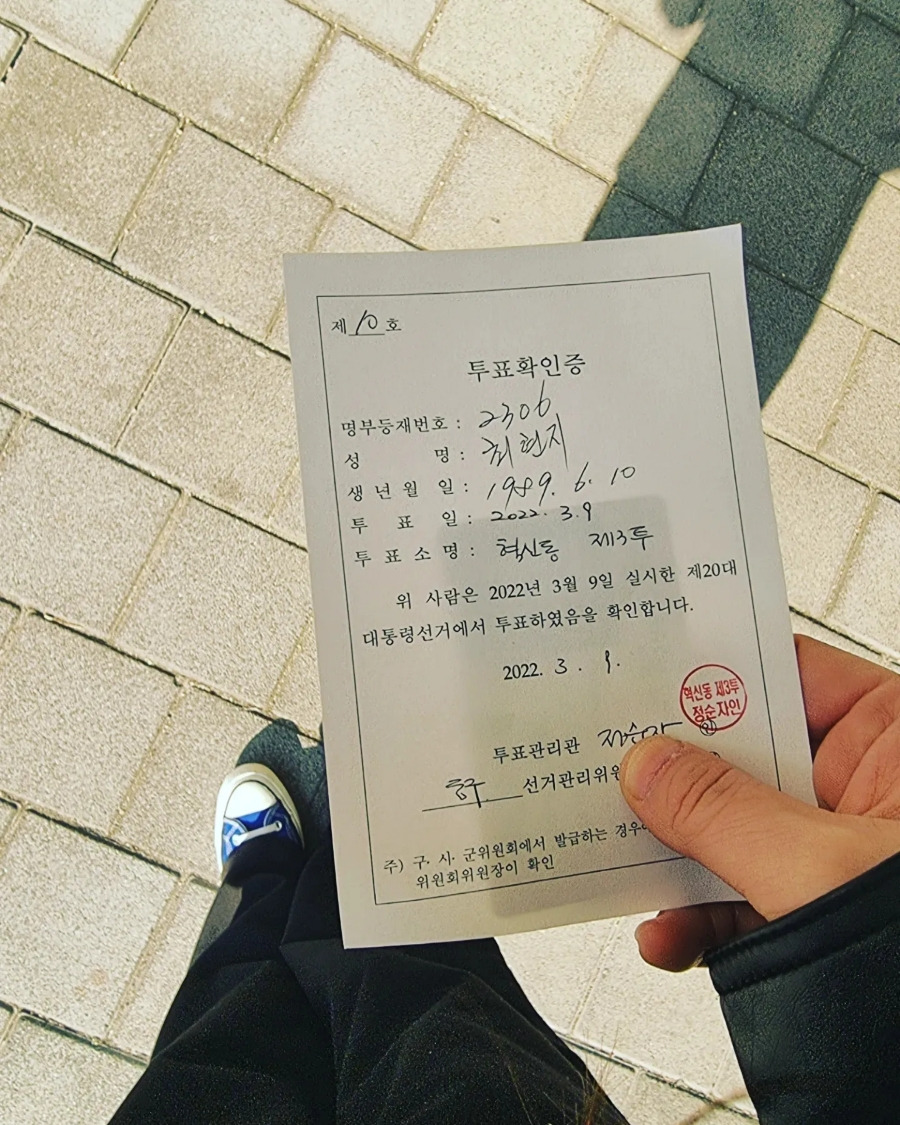 제 10 호
투표확인증
명부등재번호 : 2306
성 명 : 최현지
생 년 월 일 : 1989. 6. 10
투 표 일 : 2022. 3. 9
투 표 소 명 : 혁신동 제3투
위 사람은 2022년 3월 9일 실시한 제20대
대통령선거에서 투표하였음을 확인합니다.
2022. 3. 9.
혁신동 제3투
정순자인
투표관리관 정순자 ㊞
중구 선거관리위원
주) 구·시·군위원회에서 발급하는 경우에
위원회위원장이 확인